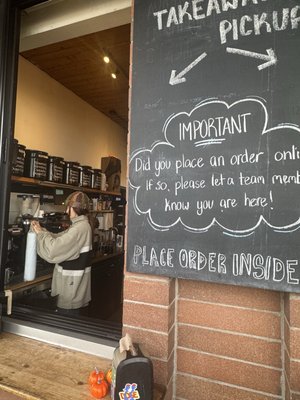 TAKEAWAY
PICKUP
IMPORTANT
Did you place an order onli
If so, please let a team memb
know you are here!
PLACE ORDER INSIDE